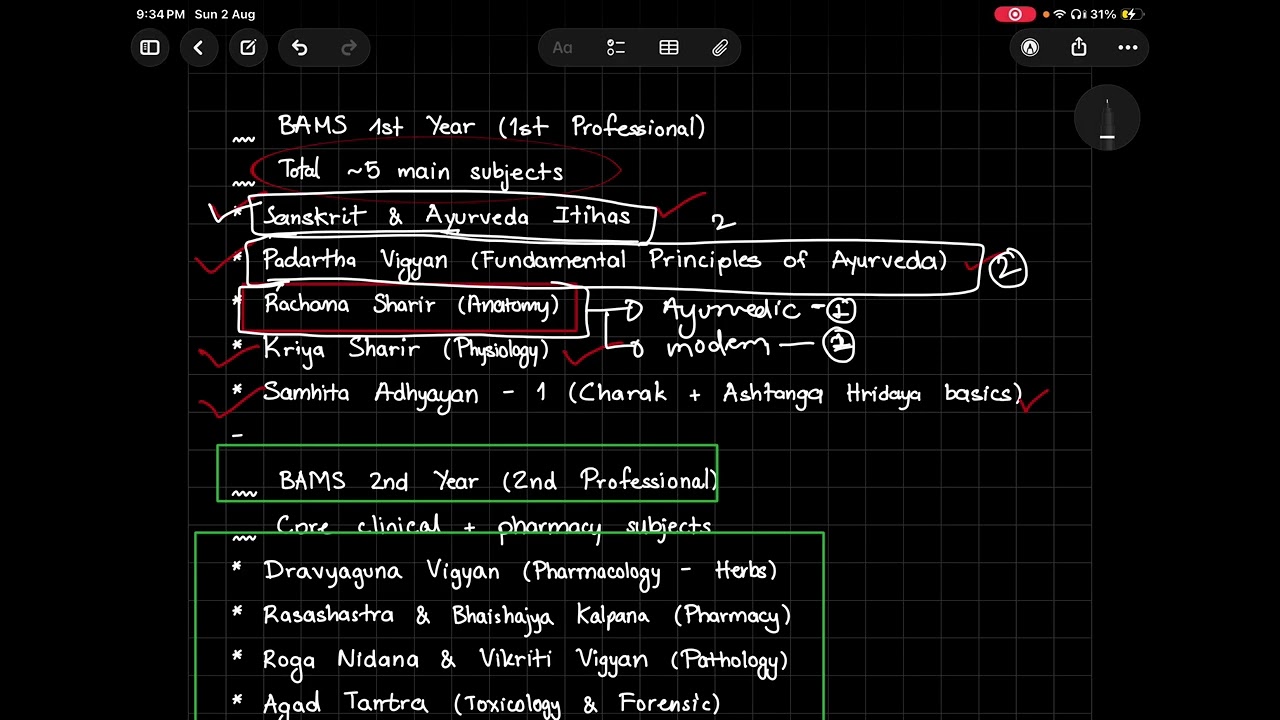 9:34 PM Sun 2 Aug 31%
Aa
BAMS 1st Year (1st Professional)
Total ~5 main subjects
* Sanskrit & Ayurveda Itihas
2
* Padartha Vigyan (Fundamental Principles of Ayurveda) 2
* Rachana Sharir (Anatomy) Ayurvedic - 1
* Kriya Sharir (Physiology) modern —
* Samhita Adhyayan - 1 (Charak + Ashtanga Hridaya basics)
-
BAMS 2nd Year (2nd Professional)
Core clinical + pharmacy subjects
* Dravyaguna Vigyan (Pharmacology - Herbs)
* Rasashastra & Bhaishajya Kalpana (Pharmacy)
* Roga Nidana & Vikriti Vigyan (Pathology)
* Agad Tantra (Toxicology & Forensic)